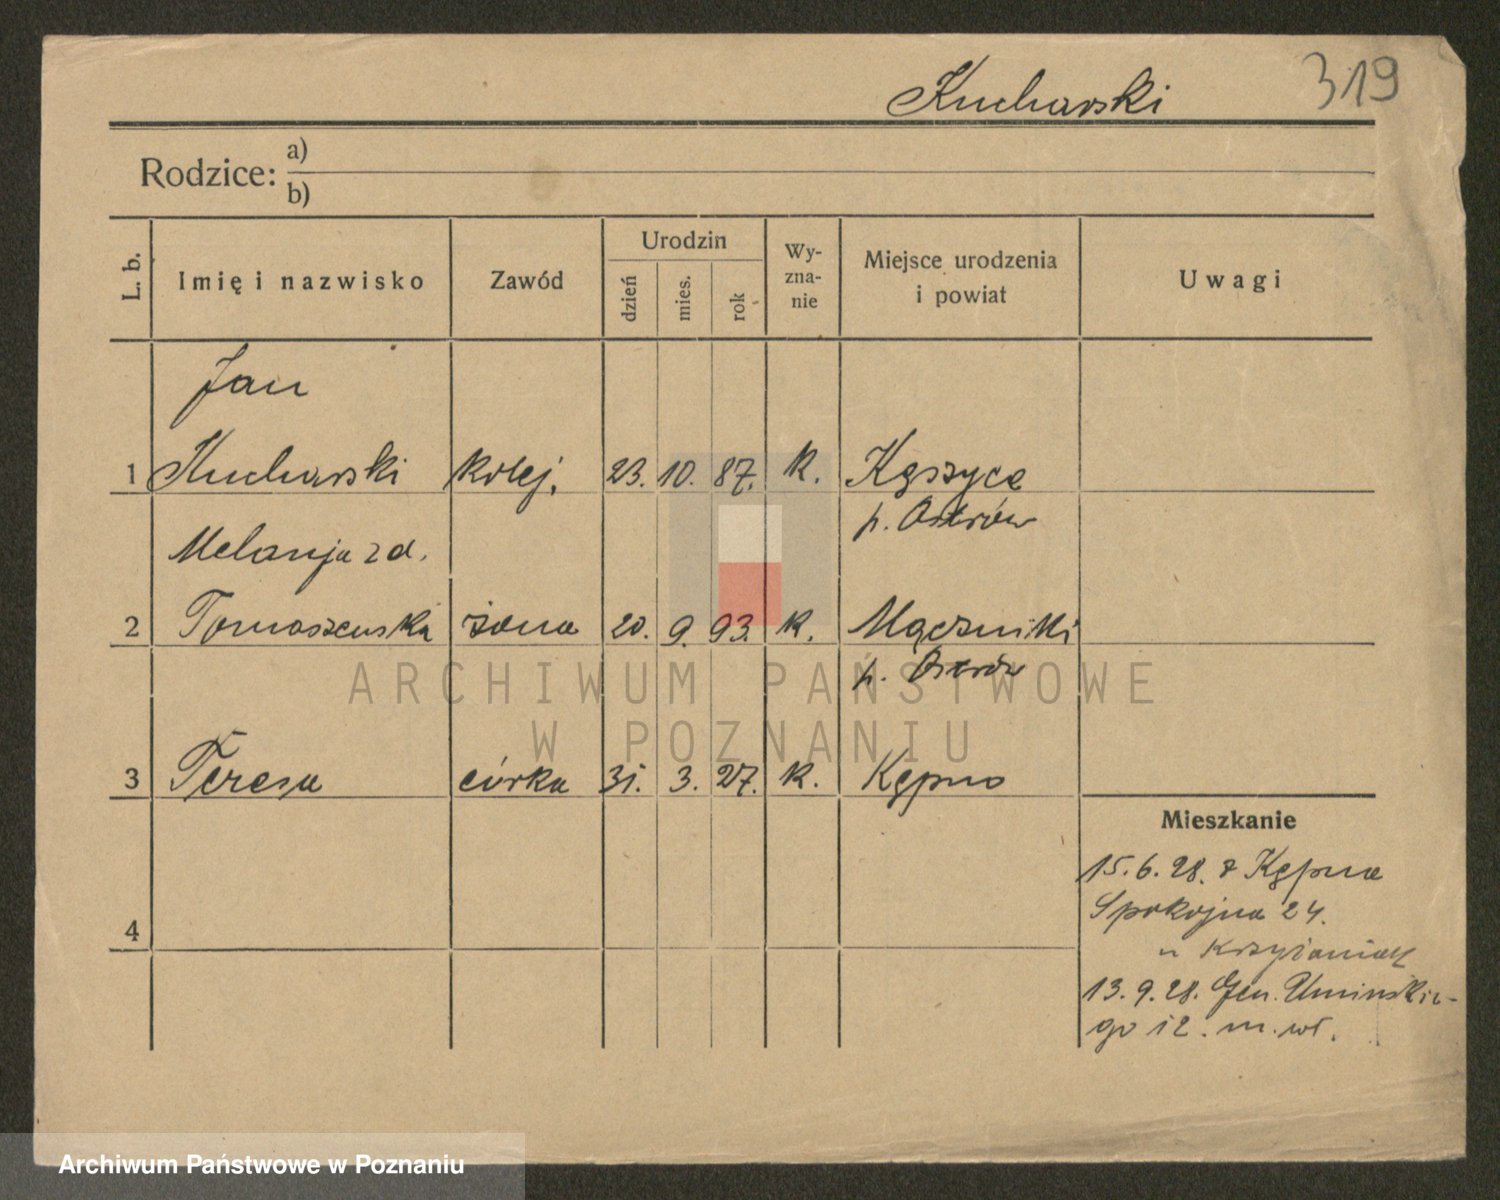 Kucharski 319
Rodzice: a)
b)
L. b. Imię i nazwisko Zawód Urodzin dzień mies. rok Wy-zna-nie Miejsce urodzenia i powiat Uwagi
Jan
1 Kucharski kolej. 23. 10. 87. k. Kęszyce
p. Ostrów
Melanja z d.
2 Tomaszewska żona 20. 9. 93. k. Mączniki
p. Ostrów
3 Teresa córka 31. 3. 27. k. Kępno
Mieszkanie
15.6.28. z Kępna
4 Spokojna 24.
u Krzyżaniak
13.9.28. Gen. Umińskie-
go 12. m. wł.
ARCHIWUM PAŃSTWOWE
W POZNANIU
Archiwum Państwowe w Poznaniu